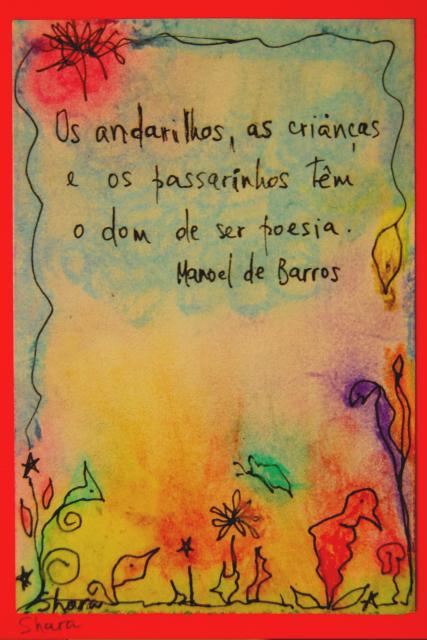 Os andarilhos, as crianças
e os passarinhos têm
o dom de ser poesia.
Manoel de Barros
Shara
Shara